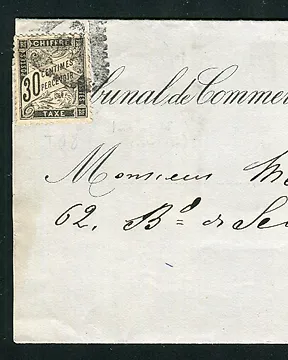 CHIFFRE
30 CENTIMES
À PERCEVOIR
TAXE
Tribunal de Commer
Monsieur
62, Bd de Se